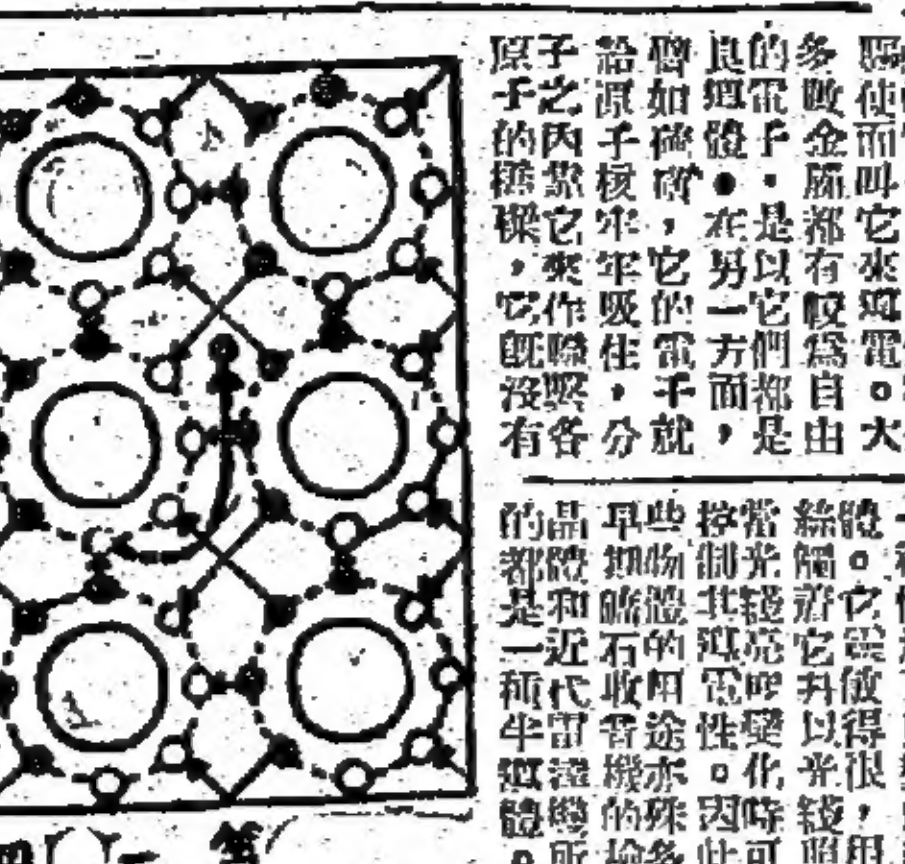 使而叫它來導電。大
多數金屬都有較為自由
的電子,是以它們都是
良導體●在另一方面,
譬如硫磺,它的電子就
給原子核牢牢吸住,分
子之內靠它來作聯繫各
原子的橋樑,它既沒有
體。它靈敏得很,用
絲觸着它并以光綫照
當光綫亮暗變化時可
控制其導電性。因此
些物體的用途亦殊多
早期礦石收音機的檢
晶體和近代雷達機所
的都是一種半導體。
第